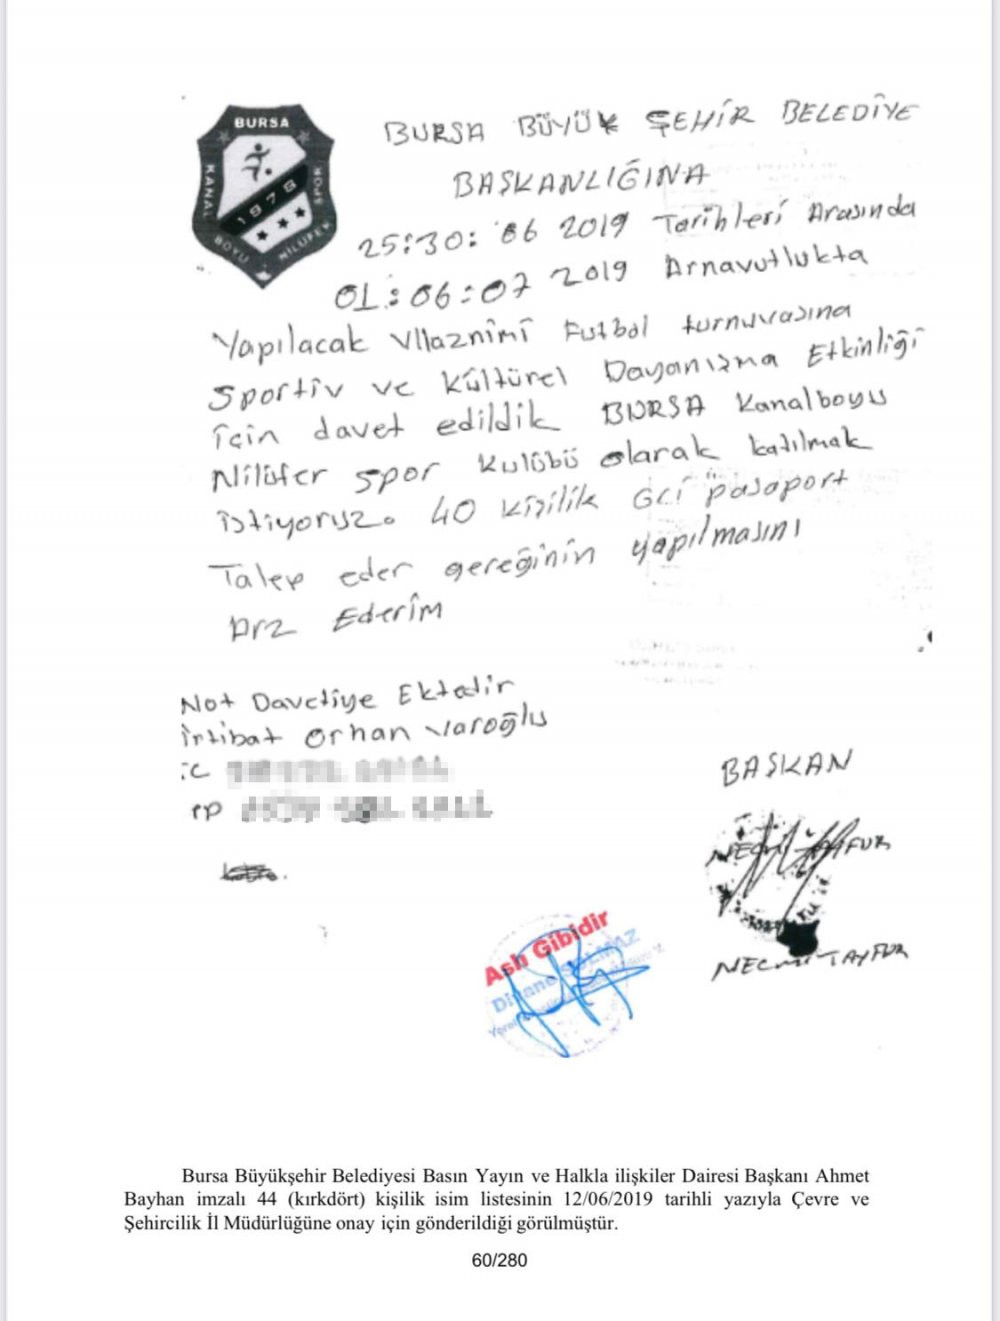 BURSA
KANAL
SPOR
1978
BOYU
NİLÜFER
BURSA BÜYÜK ŞEHİR BELEDİYE
BAŞKANLIĞINA
25:30: 06 2019 Tarihleri Arasında
01:06:07 2019 Arnavutlukta
Yapılacak Vllaznimi Futbol turnuvasına
Sportiv ve Kültürel Dayanışma Etkinliği
için davet edildik BURSA Kanalboyu
Nilüfer Spor Kulübü olarak katılmak
istiyoruz. 40 kişilik Gri pasaport
Talep eder gereğinin yapılmasını
Arz Ederim
Not Davetiye Ektedir
İrtibat Orhan Varoğlu
BAŞKAN
NECMİ TAYFUR
NECMİ TAYFUR
Aslı Gibidir
Bursa Büyükşehir Belediyesi Basın Yayın ve Halkla ilişkiler Dairesi Başkanı Ahmet
Bayhan imzalı 44 (kırkdört) kişilik isim listesinin 12/06/2019 tarihli yazıyla Çevre ve
Şehircilik İl Müdürlüğüne onay için gönderildiği görülmüştür.
60/280